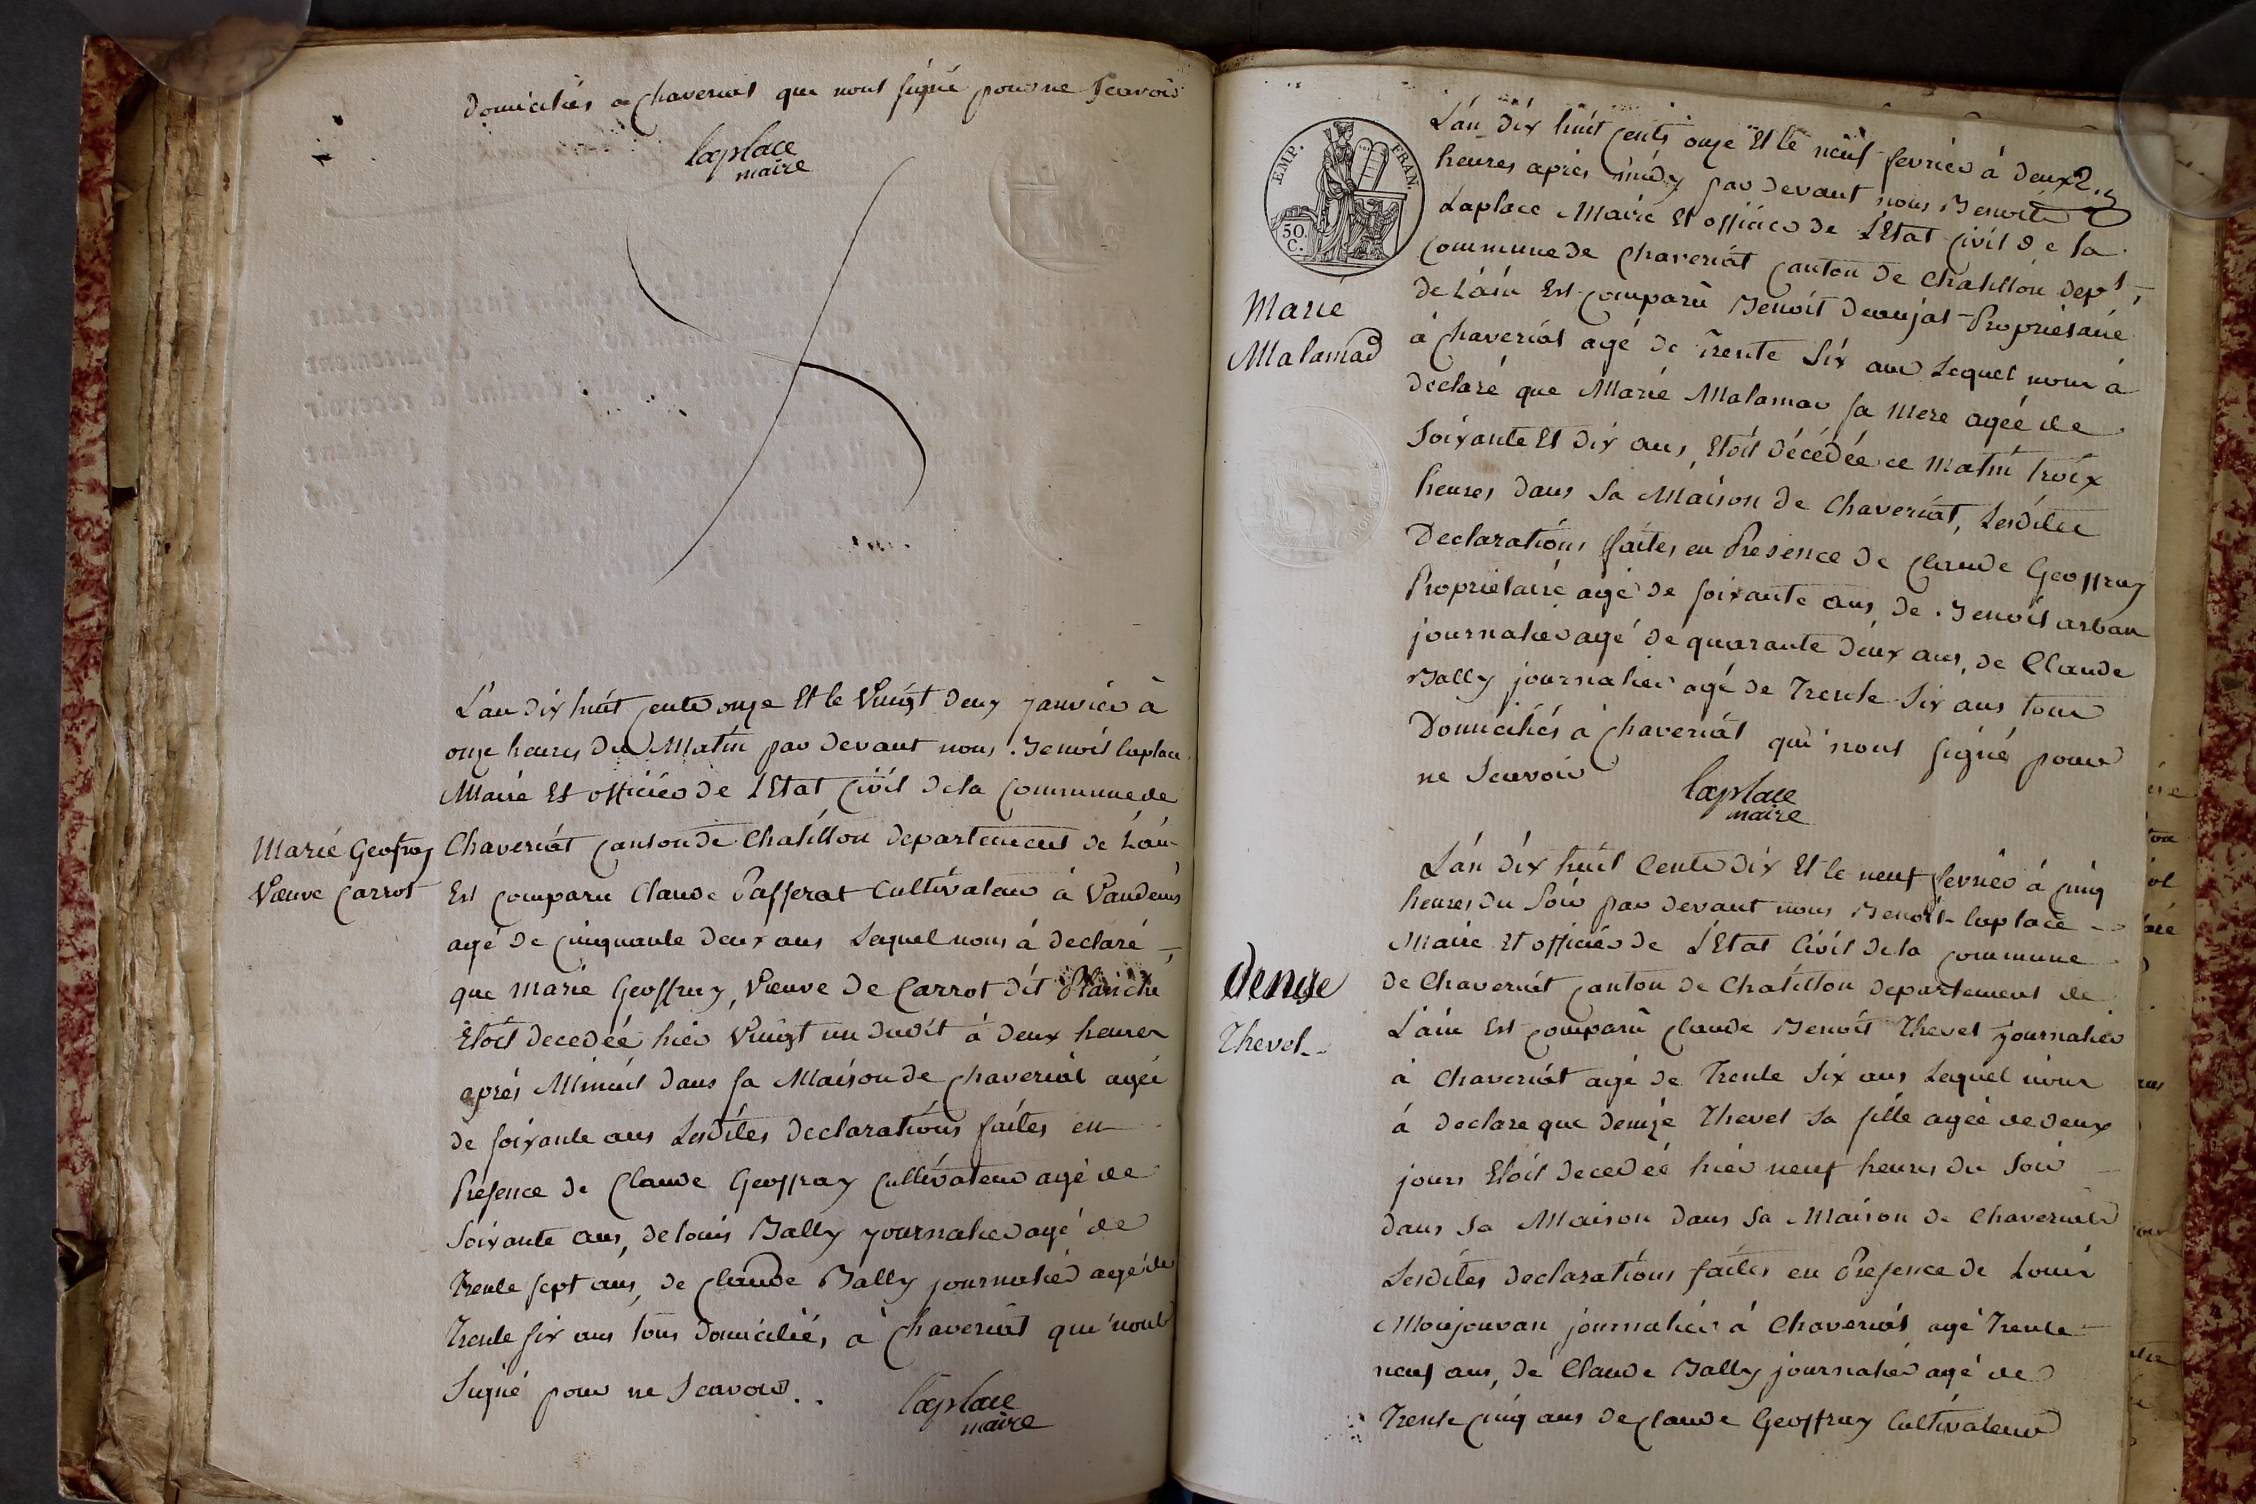 Domiciliés a Chaveriat qui nont signé pour ne Scavoir
laplace
maire
L'an dix huit cents onze Et le Vingt deux janvier à
onze heures du Matin par devant nous Benoit laplace
Maire Et officier de l'Etat Civil de la Commune de
Marie Geofray
Veuve Carrot
Chaveriat canton de Chatillon departement de L'ain
Est comparu Claude Passerat Cultivateur à Vandeins
agé de cinquante deux ans Lequel nous à declaré
que marie Geoffray, Veuve de Carrot dit Blanché
Etoit decedée hier Vingt un dudit à deux heures
après Minuit dans sa Maison de Chaveriat agée
de soixante ans Lesdites declarations faites en
Presence de Claude Geoffray Cultivateur agé de
Soixante ans, de louis Bally journalier agé de
Trente sept ans, de Claude Bally journalier agé de
Trente six ans tous domiciliés à Chaveriat qui nont
Signé pour ne Scavoir . .
laplace
maire
EMP. FRAN.
50. C.
L'an dix huit cents onze Et le neuf fevrier à deux
heures après midy par devant nous Benoit
Laplace Maire Et officier de L'Etat Civil de la
Commune de Chaveriat canton de Chatillon dept
de L'ain Est comparû Benoit Deaujat Propriétaire
Marie
Malamad
à Chaveriat agé de Trente Six ans Lequel nous à
declaré que Marie Malamad sa Mere agée de
Soixante Et dix ans, Etoit décédée ce Matin troix
heures dans sa Maison de Chaveriat, Lesdites
Declarations faites en Presence de Claude Geoffray
Propriétaire agé de soixante ans, de Benoit arban
journalier agé de quarante deux ans, de Claude
Bally journalier agé de Trente Six ans tous
Domiciliés à Chaveriat qui nont signé pour
ne Scavoir
laplace
maire
L'an dix huit Cents dix Et le neuf fevrier à cinq
heures du Soir par devant nous Benoit laplace
Maire Et officier de L'Etat Civil de la commune
denise
Thevel
de Chaveriat canton de Chatillon departement de
L'ain Est comparû Claude Benoit Thevel journalier
à Chaveriat agé de Trente Six ans Lequel nous
à declare que denize Thevel sa fille agée de deux
jours Etoit decedée hier neuf heures du Soir
dans sa Maison dans sa Maison de Chaveriat
Lesdites declarations faites en Presence de Louis
Monjouvan journalier à Chaveriat agé Trente
neuf ans, de Claude Bally journalier agé de
Trente cinq ans de Claude Geoffray Cultivateur